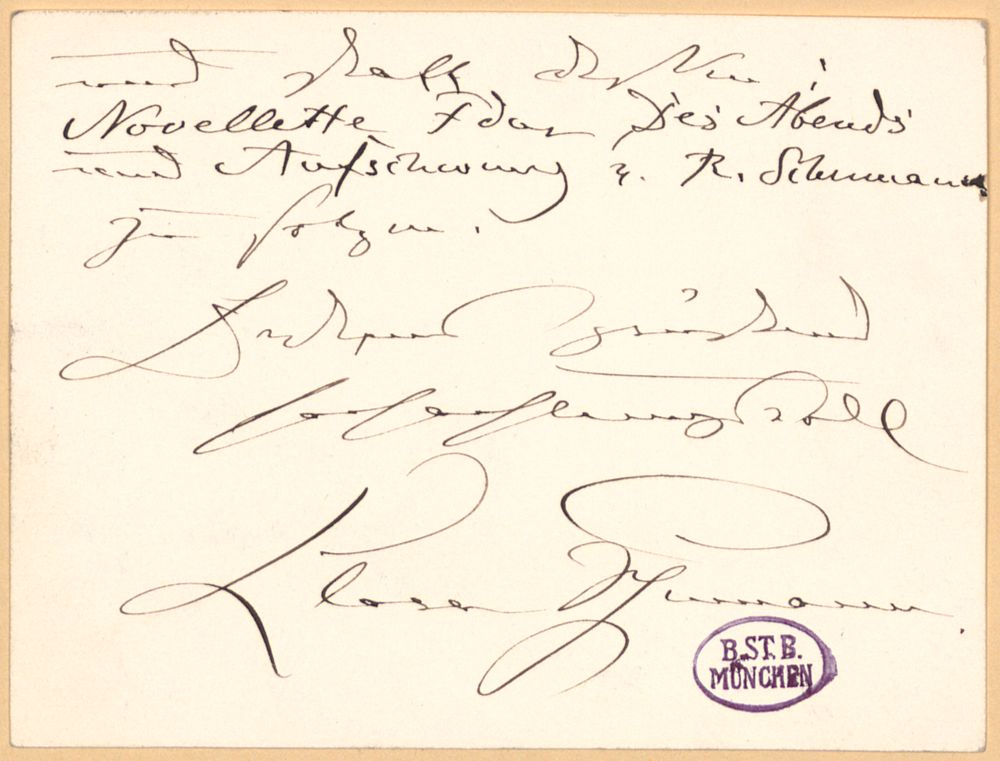 und statt dessen:
Novellette Fdur Des Abends
und Aufschwung v. R. Schumann
zu setzen.
grüssend
hochachtungsvoll
Clara Schumann.
B. ST. B.
MÜNCHEN